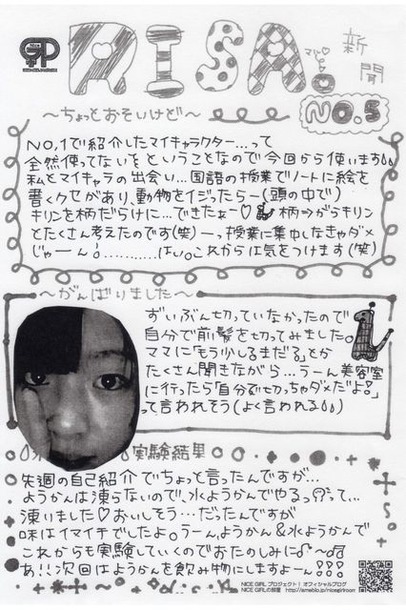 GP
RISA。
新聞
NO.5
〜ちょっとおそいけど〜
NO,1で紹介したマイキャラクター…って
全然使ってない!!ということなので今回から使います
私とマイキャラの出会い…国語の授業でノートに絵を
書くクセがあり、動物をイジッたらー(頭の中で)
キリンを柄だらけに…できたぁー♡ 柄⇒がらキリン
とたくさん考えたのです(笑)ーっ授業に集中しなきゃダメ
じゃーん!…………はい。これからは気をつけます(笑)
〜がんばりました〜
ずいぶん切っていなかったので
自分で前髪を切ってみました。
ママに「もう少しまだ?」とか
たくさん聞きながら…うーん美容室
に行ったら「自分で切っちゃダメだよ?」
って言われそう(よく言われる)
実験結果
先週の自己紹介でちょっと言ったんですが…
ようかんは凍らないので、水ようかんでやるっ!?って…
凍りました♡おいしそう…だったんですが
味はイマイチでしたよ。うーん、ようかん&水ようかんで
これからも実験していくのでおたのしみに♪〜
あ!!次回はようかんを飲み物にしますよーん!!!
NICE GIRL プロジェクト! オフィシャルブログ
NICE GIRLの部屋 http://ameblo.jp/nicegirlroom